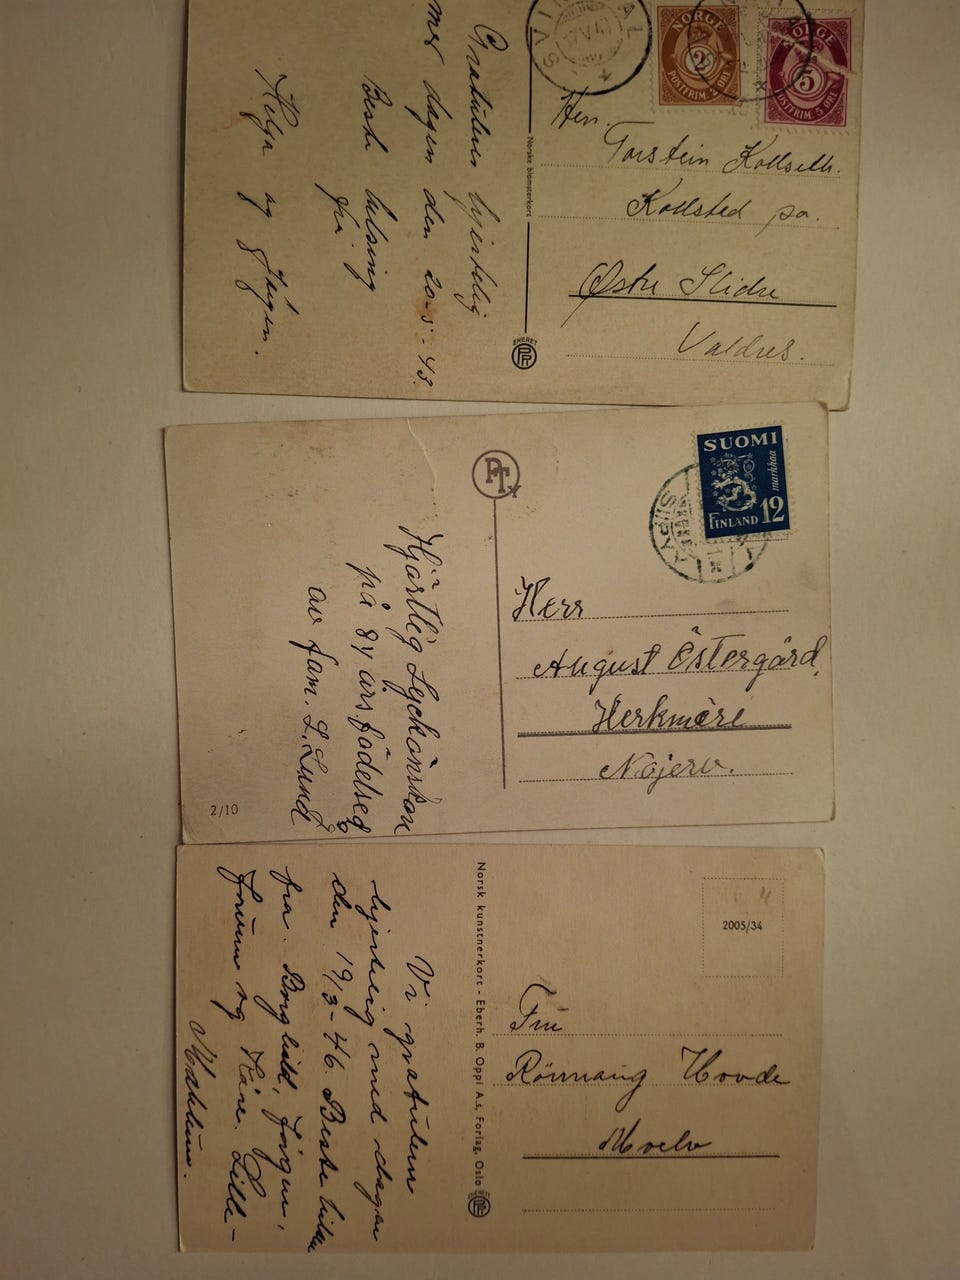 Gratulerer hjertelig
med dagen den 20-5-43.
Beste hilsing
frå
Helga og Jørgen.
Norske blomsterkort
ENERET
SVI
AL
17 V 43
NORGE
2
POSTFRIM. 2 ØRE
NORGE
5
POSTFRIM. 5 ØRE
Herr.
Torstein
Kollstad pa.
Østre Slidre
Valdres.
PT
Hjärtlig Lyckönskan
på 84 års födelsed
av fam. L. Lund
2/10
SUOMI
markkaa
FINLAND 12
SIIPY
Herr
August Östergård,
Herkmere
Nöjerv.
Vi gratulerer
hjertelig med dagen
den 19/3-46. Beste hilsen
fra. Borghild, Jørgen,
og Kåre. Lille-
Norsk kunstnerkort - Eberh. B. Oppi A.s, Forlag, Oslo
ENERET
4
2005/34
Rönnaug Hovde
Moelv